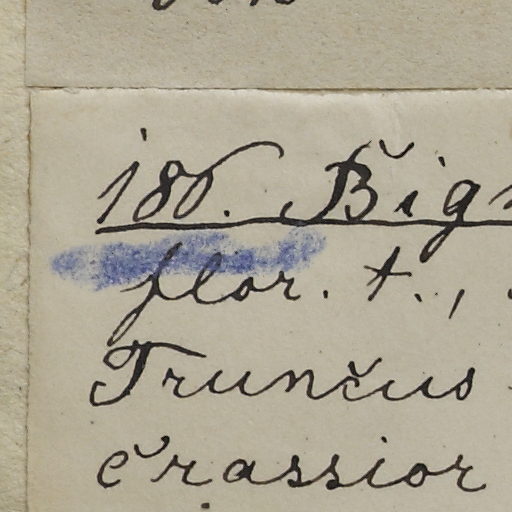 186. Bign
flor. t.,
Truncus
crassior